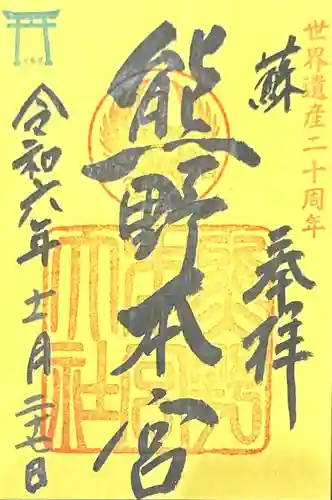 世界遺産二十周年
蘇
奉拝
熊野本宮
令和六年十一月二十七日